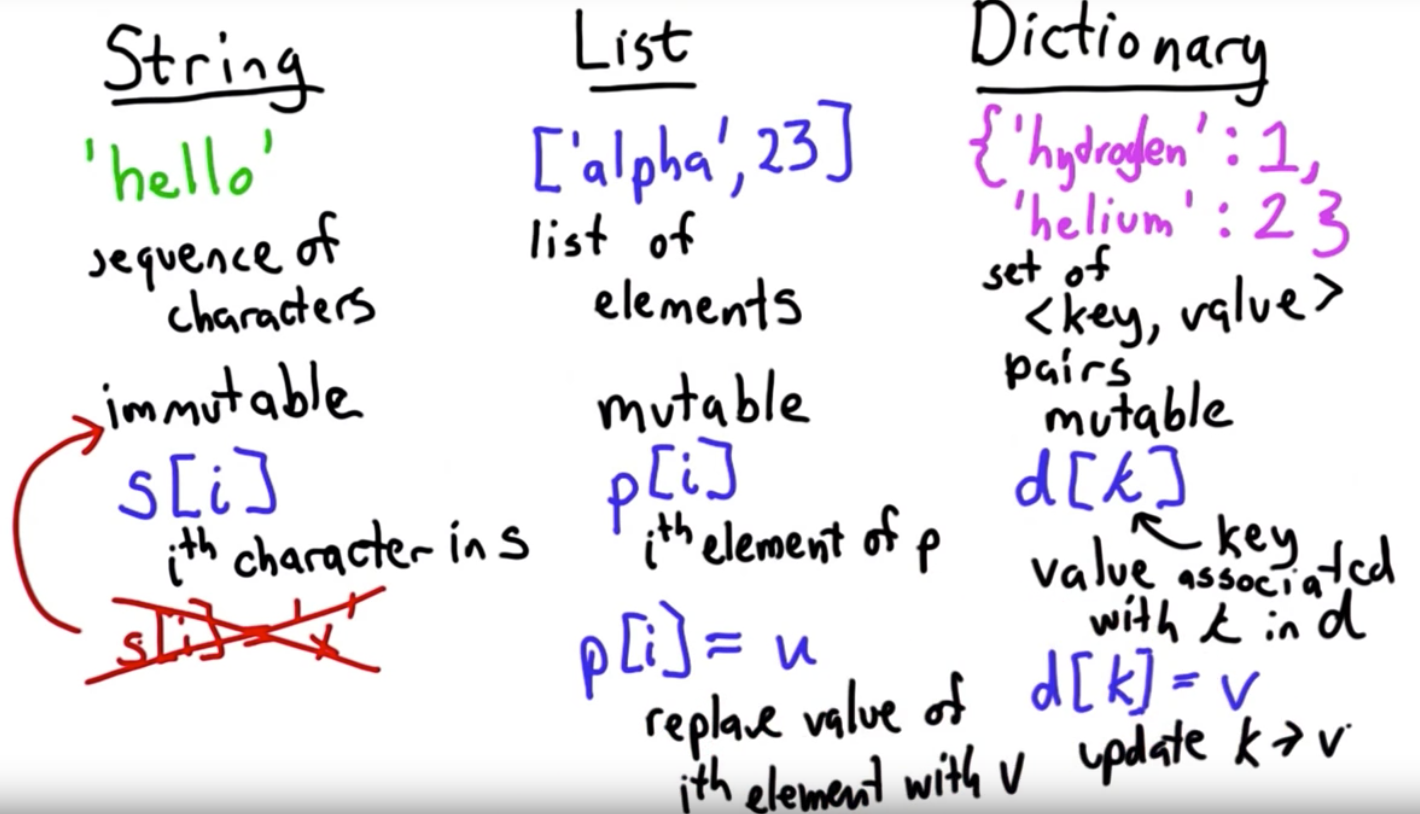 String
'hello'
sequence of
characters
immutable
s[i]
ith character in s
s[i] = 'x'
List
['alpha', 23]
list of
elements
mutable
p[i]
ith element of p
p[i] = u
replace value of
ith element with v
Dictionary
{'hydrogen' : 1,
'helium' : 2}
set of
<key, value>
pairs
mutable
d[k]
key
value associated
with k in d
d[k] = v
update k → v